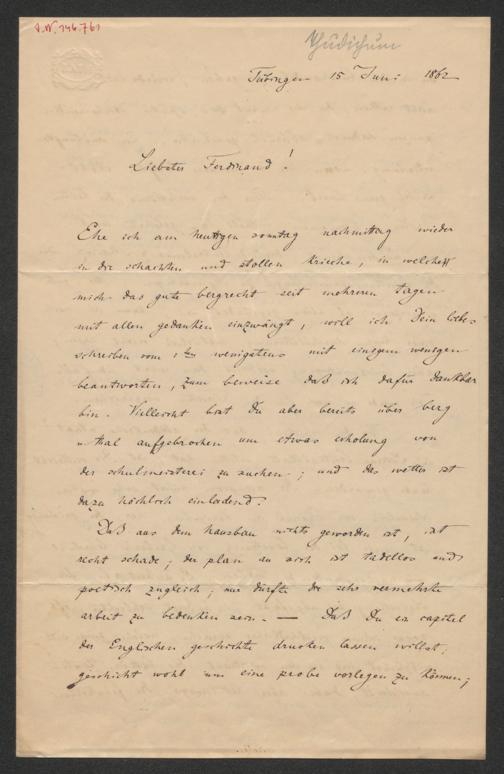 J.N. 146.761
Thudichum
Tübingen 15 Juni 1862
Liebster Ferdinand!
Ehe ich am heutigen sonntag nachmittag wieder
in die schachten und stollen krieche, in welche
mich das gute bergrecht seit mehreren tagen
mit allen gedanken einzwängt, will ich Dein liebes
schreiben vom 1ten wenigstens mit einigem wenigen
beantworten, zum beweise daß ich dafür dankbar
bin. Vielleicht bist Du aber bereits über berg
u thal aufgebrochen um etwas erholung von
der schulmeisterei zu suchen; und das wetter ist
dazu höchlich einladend.
Daß aus dem hausbau nichts geworden ist, ist
recht schade; der plan an sich ist tadellos und
poetisch zugleich; nur dürfte die sehr vermehrte
arbeit zu bedenken sein. — Daß Du ein capitel
der Englischen geschichte drucken lassen willst,
geschieht wohl um eine probe vorlegen zu können;